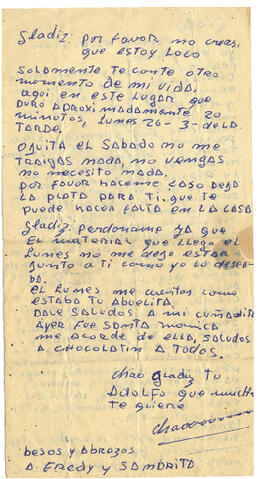 Gladiz: por favor no creas,
que estoy loco
Solamente te conte otro
momento de mi vida.
aqui en este lugar que
duro aproximadamente 20
minutos, lunes 26-3-de la
tarde.
Oguita el sabado no me
traigas nada, no vengas
no necesito nada.
por favor haceme caso deja
la plata para ti, que te
puede hacer falta en la casa
Gladiz: perdoname ya que
el material que llego el
lunes no me dejo estar
junto a ti como yo lo desea-
ba.
el lunes me cuentas como
estaba tu abuelita,
dale saludos a mi cuñadita
Ayer fue santa monica
me acorde de ella, saludos
a chocolatin a todos.
chao gladiz tu
Adolfo que mucho
te quiere
chaooooooo
besos y abrazos
a Fredy y Sandrita